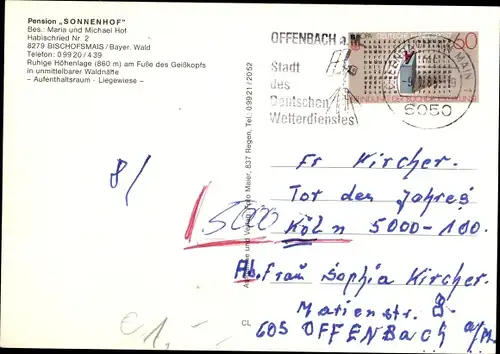 Pension „SONNENHOF"
Bes.: Maria und Michael Hof
Habischried Nr. 2
8279 BISCHOFSMAIS/Bayer. Wald
Telefon 0 99 20 / 4 39
Ruhige Höhenlage (860 m) am Fuße des Geißkopfs
in unmittelbarer Waldnähe
– Aufenthaltsraum - Liegewiese –
OFFENBACH a.M.
Stadt
des
Deutschen
Wetterdienstes
60
6050
Maier, 837 Regen, Tel. 0 99 21 / 20 52
CL
8/
5000
Fr Kircher.
Tor des Jahres
Köln 5000-100.
Ab. Frau Sophia Kircher.
Marienstr. 8.
605 OFFENBACH a/M.
€ 1,-